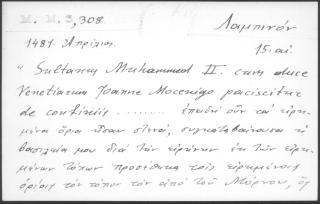 M. M. 3,308. Λαμπινόν
1481. Ἀπρίλιος. 15. αἰ
" Sultanus Muhammed II. cum duce
Venetiarum Joanne Mocenigo paciscitur
de confiniis ........ ἐπειδὴ οὖν τὰ εἰρη-
μένα ὅρια ἦσαν στενά, συγκαταβαίνουσα ἡ
βασιλεία μου διὰ τὴν εἰρήνην ἐκ τῶν εἰρη-
μένων τόπων προστίθημι τοῖς εἰρημένοις
ὁρίοις τὸν τόπον τὸν ἀπὸ τοῦ Μόρνου, ὃς